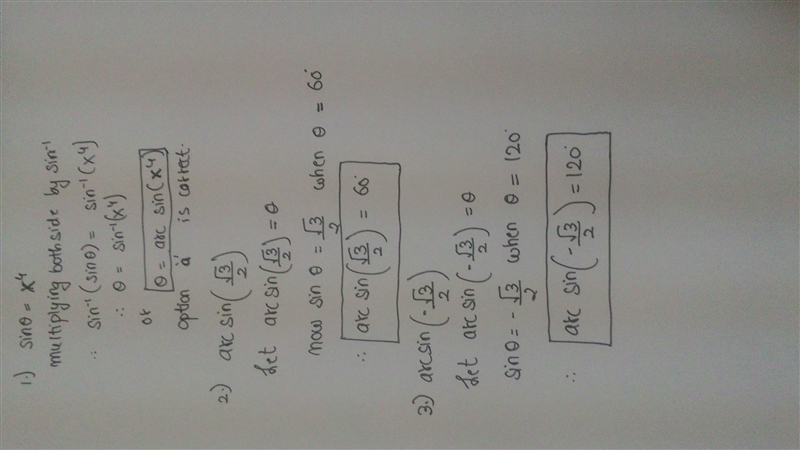 1.) sinθ = x⁴
multiplying both side by sin⁻¹
∴ sin⁻¹ (sinθ) = sin⁻¹ (x⁴)
∴ θ = sin⁻¹(x⁴)
or θ = arc sin(x⁴)
option a is correct.
2.) arc sin(√3/2)
Let arc sin(√3/2) = θ
now sin θ = √3/2 when θ = 60°
∴ arc sin(√3/2) = 60°
3.) arc sin(-√3/2)
Let arc sin(-√3/2) = θ
sin θ = -√3/2 when θ = 120°
∴ arc sin(-√3/2) = 120°